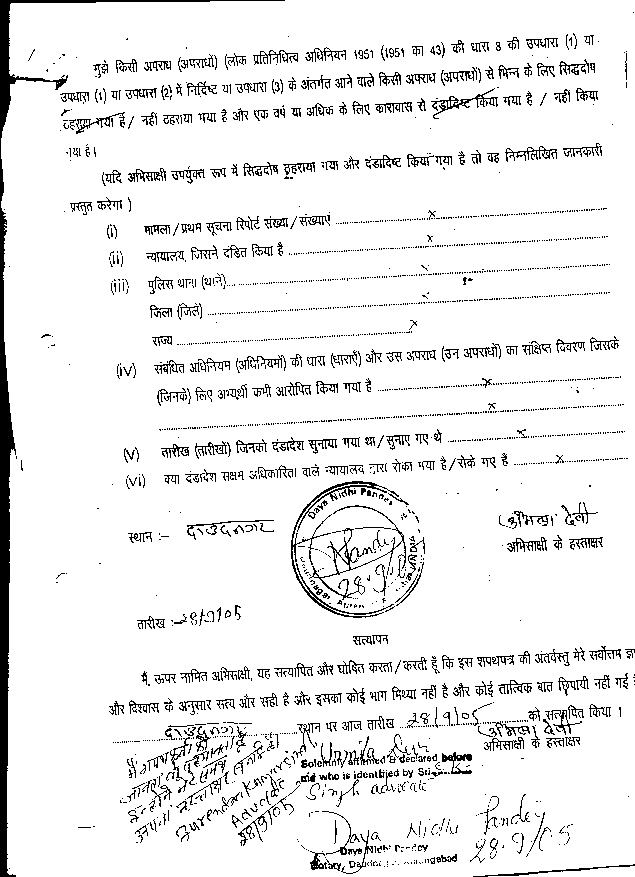 मुझे किसी अपराध (अपराधों) (लोक प्रतिनिधित्व अधिनियम 1951 (1951 का 43) की धारा 8 की उपधारा (1) या
उपधारा (1) या उपधारा (2) में निर्दिष्ट या उपधारा (3) के अंतर्गत आने वाले किसी अपराध (अपराधों) से भिन्न के लिए सिद्धदोष
ठहराया गया है / नहीं ठहराया गया है और एक वर्ष या अधिक के लिए कारावास से दंडादिष्ट किया गया है / नहीं किया
गया है।
(यदि अभिसाक्षी उपर्युक्त रूप में सिद्धदोष ठहराया गया और दंडादिष्ट किया गया है तो वह निम्नलिखित जानकारी
प्रस्तुत करेगा)
(i) मामला / प्रथम सूचना रिपोर्ट संख्या / संख्याएं x
(ii) न्यायालय, जिसने दंडित किया है x
(iii) पुलिस थाना (थाने)
जिला (जिले)
राज्य x
(iv) संबंधित अधिनियम (अधिनियमों) की धारा (धाराएँ) और उस अपराध (उन अपराधों) का संक्षिप्त विवरण जिसके
(जिनके) लिए अभ्यर्थी कभी आरोपित किया गया है x
x
(v) तारीख (तारीखों) जिनको दंडादेश सुनाया गया था / सुनाए गए थे x
(vi) क्या दंडादेश सक्षम अधिकारिता वाले न्यायालय द्वारा रोका गया है / रोके गए है x
Daya Nidhi Pandey
Pandey
28.9.05
स्थान :- दाउदनगर
उर्मिला देवी
अभिसाक्षी के हस्ताक्षर
तारीख :- 28/9/05
सत्यापन
मैं, ऊपर नामित अभिसाक्षी, यह सत्यापित और घोषित करता / करती हूँ कि इस शपथपत्र की अंतर्वस्तु मेरे सर्वोत्तम
और विश्वास के अनुसार सत्य और सही है और इसका कोई भाग मिथ्या नहीं है और कोई तात्विक बात छिपायी नहीं गई
दाउदनगर स्थान पर आज तारीख 28/9/05 को सत्यापित किया।
उर्मिला देवी
अभिसाक्षी के हस्ताक्षर
Surendra Kumar Singh
Advocate
28/9/05
Urmila Devi
Solemnly affirmed & declared before
me who is identified by Sri S. K.
Singh advocate
Daya Nidhi Pandey
28.9/05
Daya Nidhi Pandey
Notary, Daudnagar Aurangabad